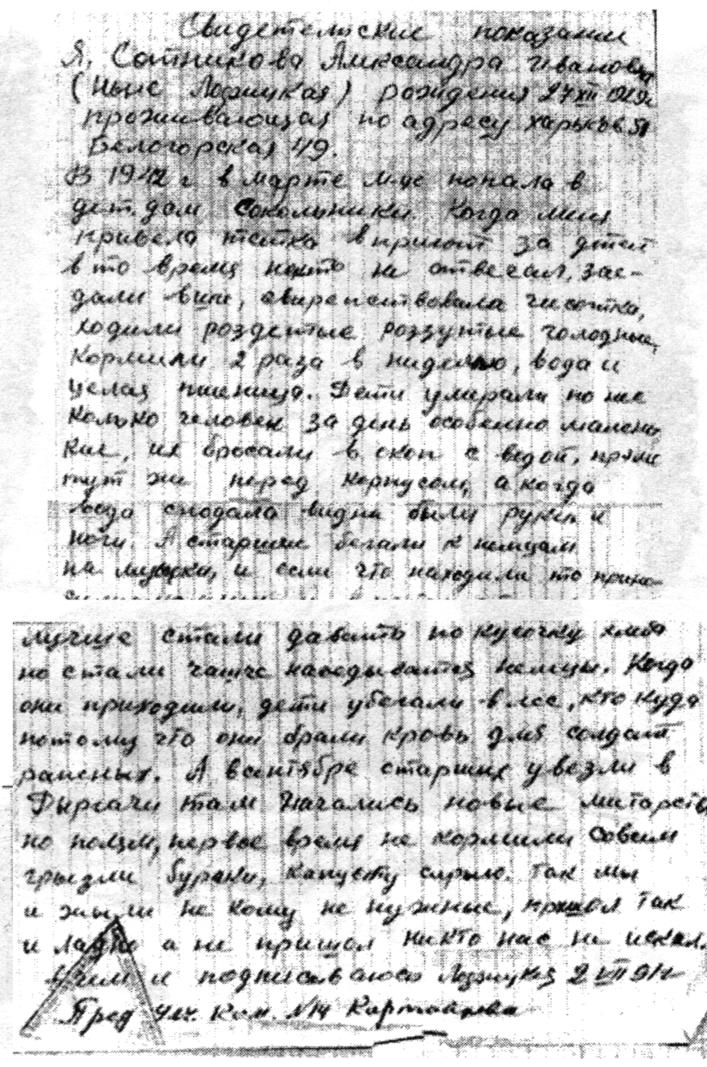 Свидетельские показания
Я, Сотникова Александра Ивановна
(Ныне Лозицкая) рождения 27 XII 1929г
проживающая по адресу Харьков 51
Белогорская 49.
В 1942 г в марте м-це попала в
дет. дом Сокольники. Когда меня
привела тетка в приют за детей
в то время некто не отвечал, зае-
дали вши, свирепствовала чисотка,
ходили роздетые роззутые голодные,
кормили 2 раза в неделю, вода и
целая пшеница. Дети умерали по нес
колько человек за день особенно малень
кие, их бросали в окоп с водой, прями
тут же перед корпусом, а когда
вода сподала видны были руки и
ноги. А старшие бегали к немцам
на и если что находили то прино-
лучше стали давать по кусочку хлеба
но стали чаще наведыватся немцы. Когда
они приходили, дети убегали в лес, кто куда
потому что они брали кровь для солдат
раненых. А в сентябре старших увезли в
Диргачи там начались новые митарства
по полям, первое время не кормили совсем
грызли буряки, капусту сырую. Так мы
и жыли не кому не нужные, пришол так
и ладно а не пришол никто нас не искал.
В чем и подписываюсь 2 VII 91г
Пред ул. ком. №14